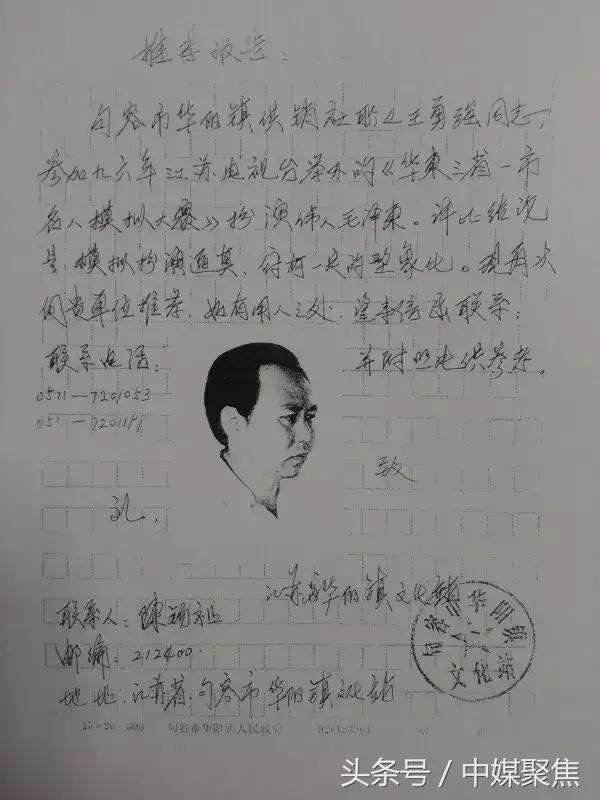 推荐报告：
句容市华阳镇供销社职工王勇强同志，
参加九六年江苏电视台举办的《华东三省一市
名人模拟大赛》扮演伟人毛泽东。评比
模拟扮演逼真，有一定的型象化。现再次
向贵单位推荐，如有用人之处，望联系；
联系电话： 并附照片供参考。
0511—7201053
致
礼，
江苏省华阳镇文化站
联系人：陈
邮编：212400.
地址：江苏省，句容市华阳镇文化站
句容市华阳镇
文化站
15×20 300 句容市华阳镇人民政府
头条号／中媒聚焦